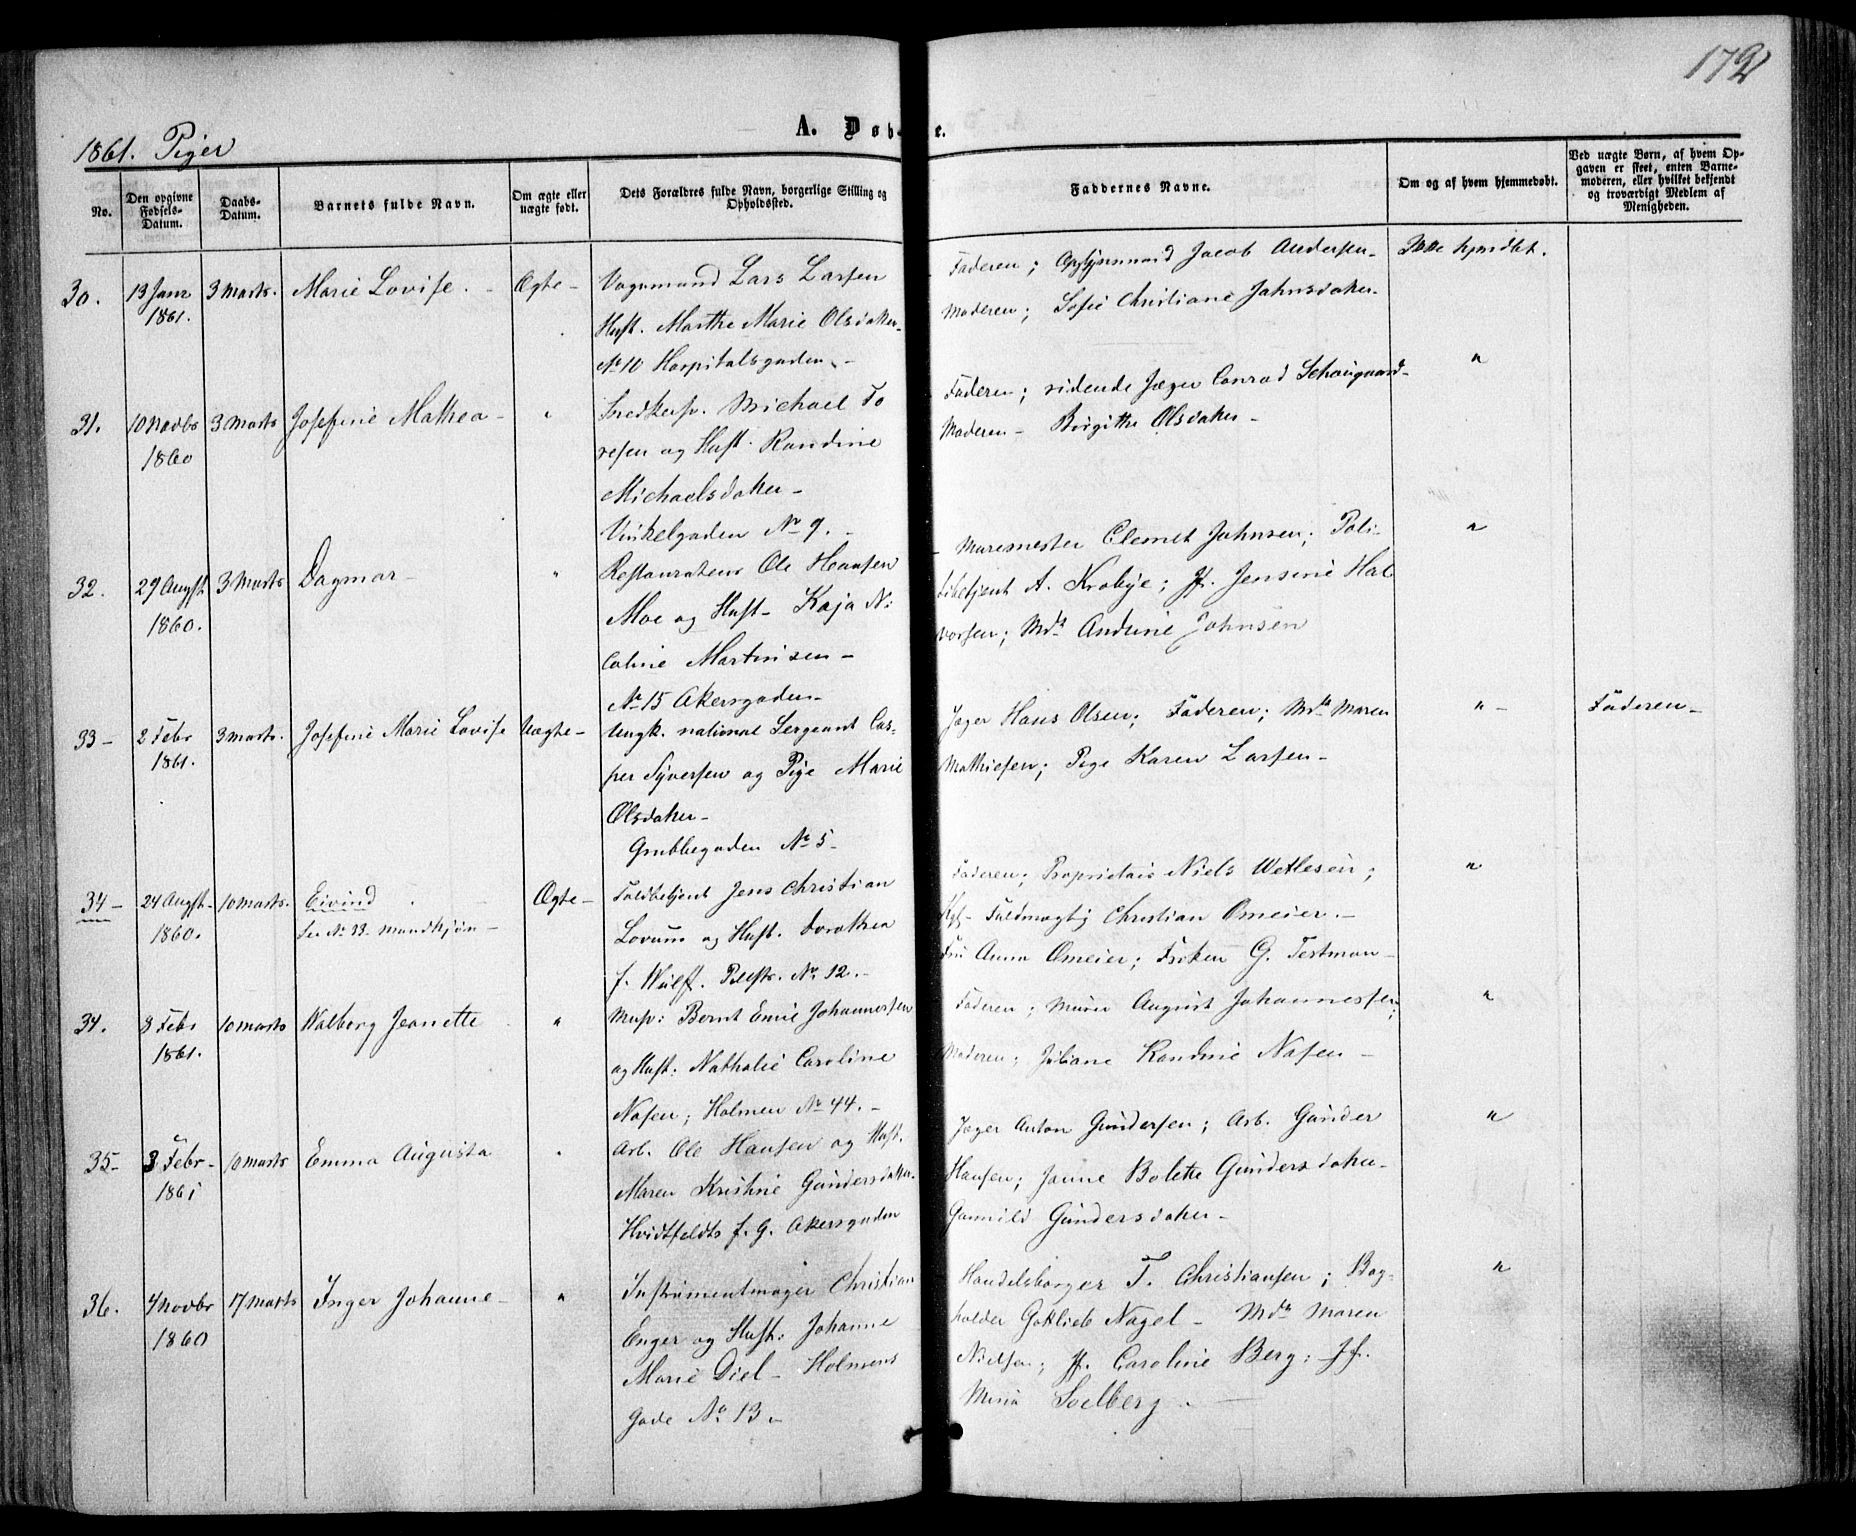 172
1861. Piger
A. Døb e.
No.
Den opgivne Fødsels-Datum.
Daabs-Datum.
Barnets fulde Navn.
Om ægte eller uægte født.
Dets Forældres fulde Navn, borgerlige Stilling og Opholdssted.
Faddernes Navne.
Om og af hvem hjemmedøbt.
Ved uægte Børn, af hvem Opgaven er skeet, enten Barnemoderen, eller hvilket bekjendt og troværdigt Medlem af Menigheden.
30.
13 Janr 1861.
3 Marts.
Marie Lovise.
Ægte -
Vognmand Lars Larsen
Hust. Marthe Marie Olsdatter.
No 10 Hospitalsgaden. -
Faderen; Jacob Andersen
Moderen; Sofie Christiane Jahnsdatter
Ikke hjmdbt.
31.
10 Novbr 1860
3 Marts
Josefine Mathea -
"
Snedkersv. Michael To
resen og Hust. Randine
Michaelsdatter -
Vinkelgaden No 9. -
Faderen; ridende Jæger Conrad Schougaard -
Moderen - Birgitte Olsdatter -
"
32.
29 Augst 1860.
3 Marts
Dagmar -
"
Restaurateur Ole Hansen
Moe og Hust - Kaja Ni
coline Martinsen -
No 15 Akersgaden -
Muremester Clemet Johnsen; Poli-
tibetjent A. Krabye; Jf. Jensine Hal
vorsen; Md. Andrine Johnsen
"
33 -
2 Febr 1861.
3 Marts.
Josefine Marie Lovise
Uægte -
Ungk. national Sergeant Cas-
per Syversen og Pige Marie
Olsdatter -
Grubbegaden No 5 -
Jæger Hans Olsen; Faderen; Md. Maren
Mathiesen; Pige Karen Larsen -
" -
Faderen -
34 -
24 Augst. 1860.
10 Marts.
Eivind
See No 33 Mandkjøn -
Ægte -
Toldbetjent Jens Christian
Lovum og Hust. Dorothea
f. Wulf. Pilestr. No 12. -
Faderen; Proprietair Niels Wetlesen;
Kgl. Fuldmægtig Christian Omeier. -
Fru Anna Omeier; Frøken G. Testman -
"
34.
8 Febr 1861.
10 Marts
Walborg Jeanette
"
Musv: Bernt Emil Johannessen
og Hust: Nathalie Caroline
Nasen; Holmen No 44. -
Faderen; Murer August Johannessen;
Moderen; Juliane Randine Nasen -
"
35 -
3 Febr - 1861
10 Marts
Emma Augusta
"
Arb. Ole Hansen og Hust.
Maren Kristine Gundersdatter.
Hvidtfeldts f. G. Akersgaden
Jæger Anton Gundersen; Arb. Gunder
Hansen; Janne Bolette Gundersdatter -
Gunnild Gundersdatter -
"
36.
4 Novbr 1860
17 Marts
Inger Johanne -
"
Instrumentmager Christian
Enger og Hust: Johanne
Marie Diel - Holmens
Gade No 13 -
Handelsborger T. Christiansen; Bog-
holder Gottlieb Nagel - Md. Maren
Nielsen; Jf. Caroline Berg; Jf.
Mina Soelberg -
"